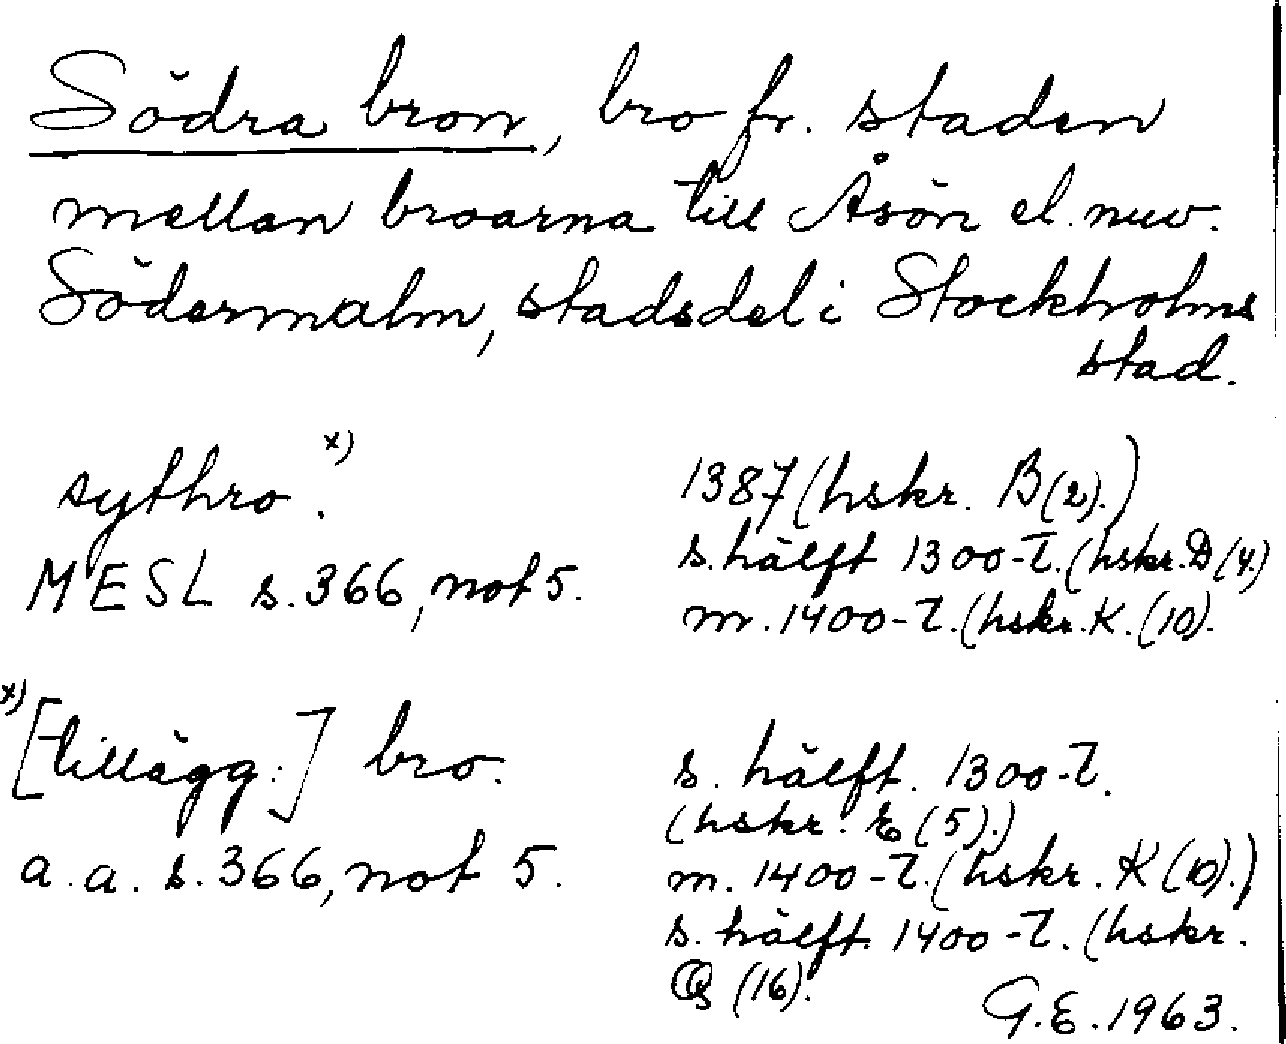 Södra bron, bro fr. staden
mellan broarna till Åsön el. nuv.
Södermalm, stadsdel i Stockholms
stad.
sythro. x)
1387 (hskr. B (2).)
s. hälft 1300-t. (hskr. D (4.)
MESL s. 366, not 5.
m. 1400-t. (hskr. K. (10).
x) [tillägg:] bro.
s. hälft. 1300-t.
(hskr. E (5).)
a. a. s. 366, not 5.
m. 1400-t. (hskr. K (10).)
s. hälft. 1400-t. (hskr.
Q (16).
G.E. 1963.